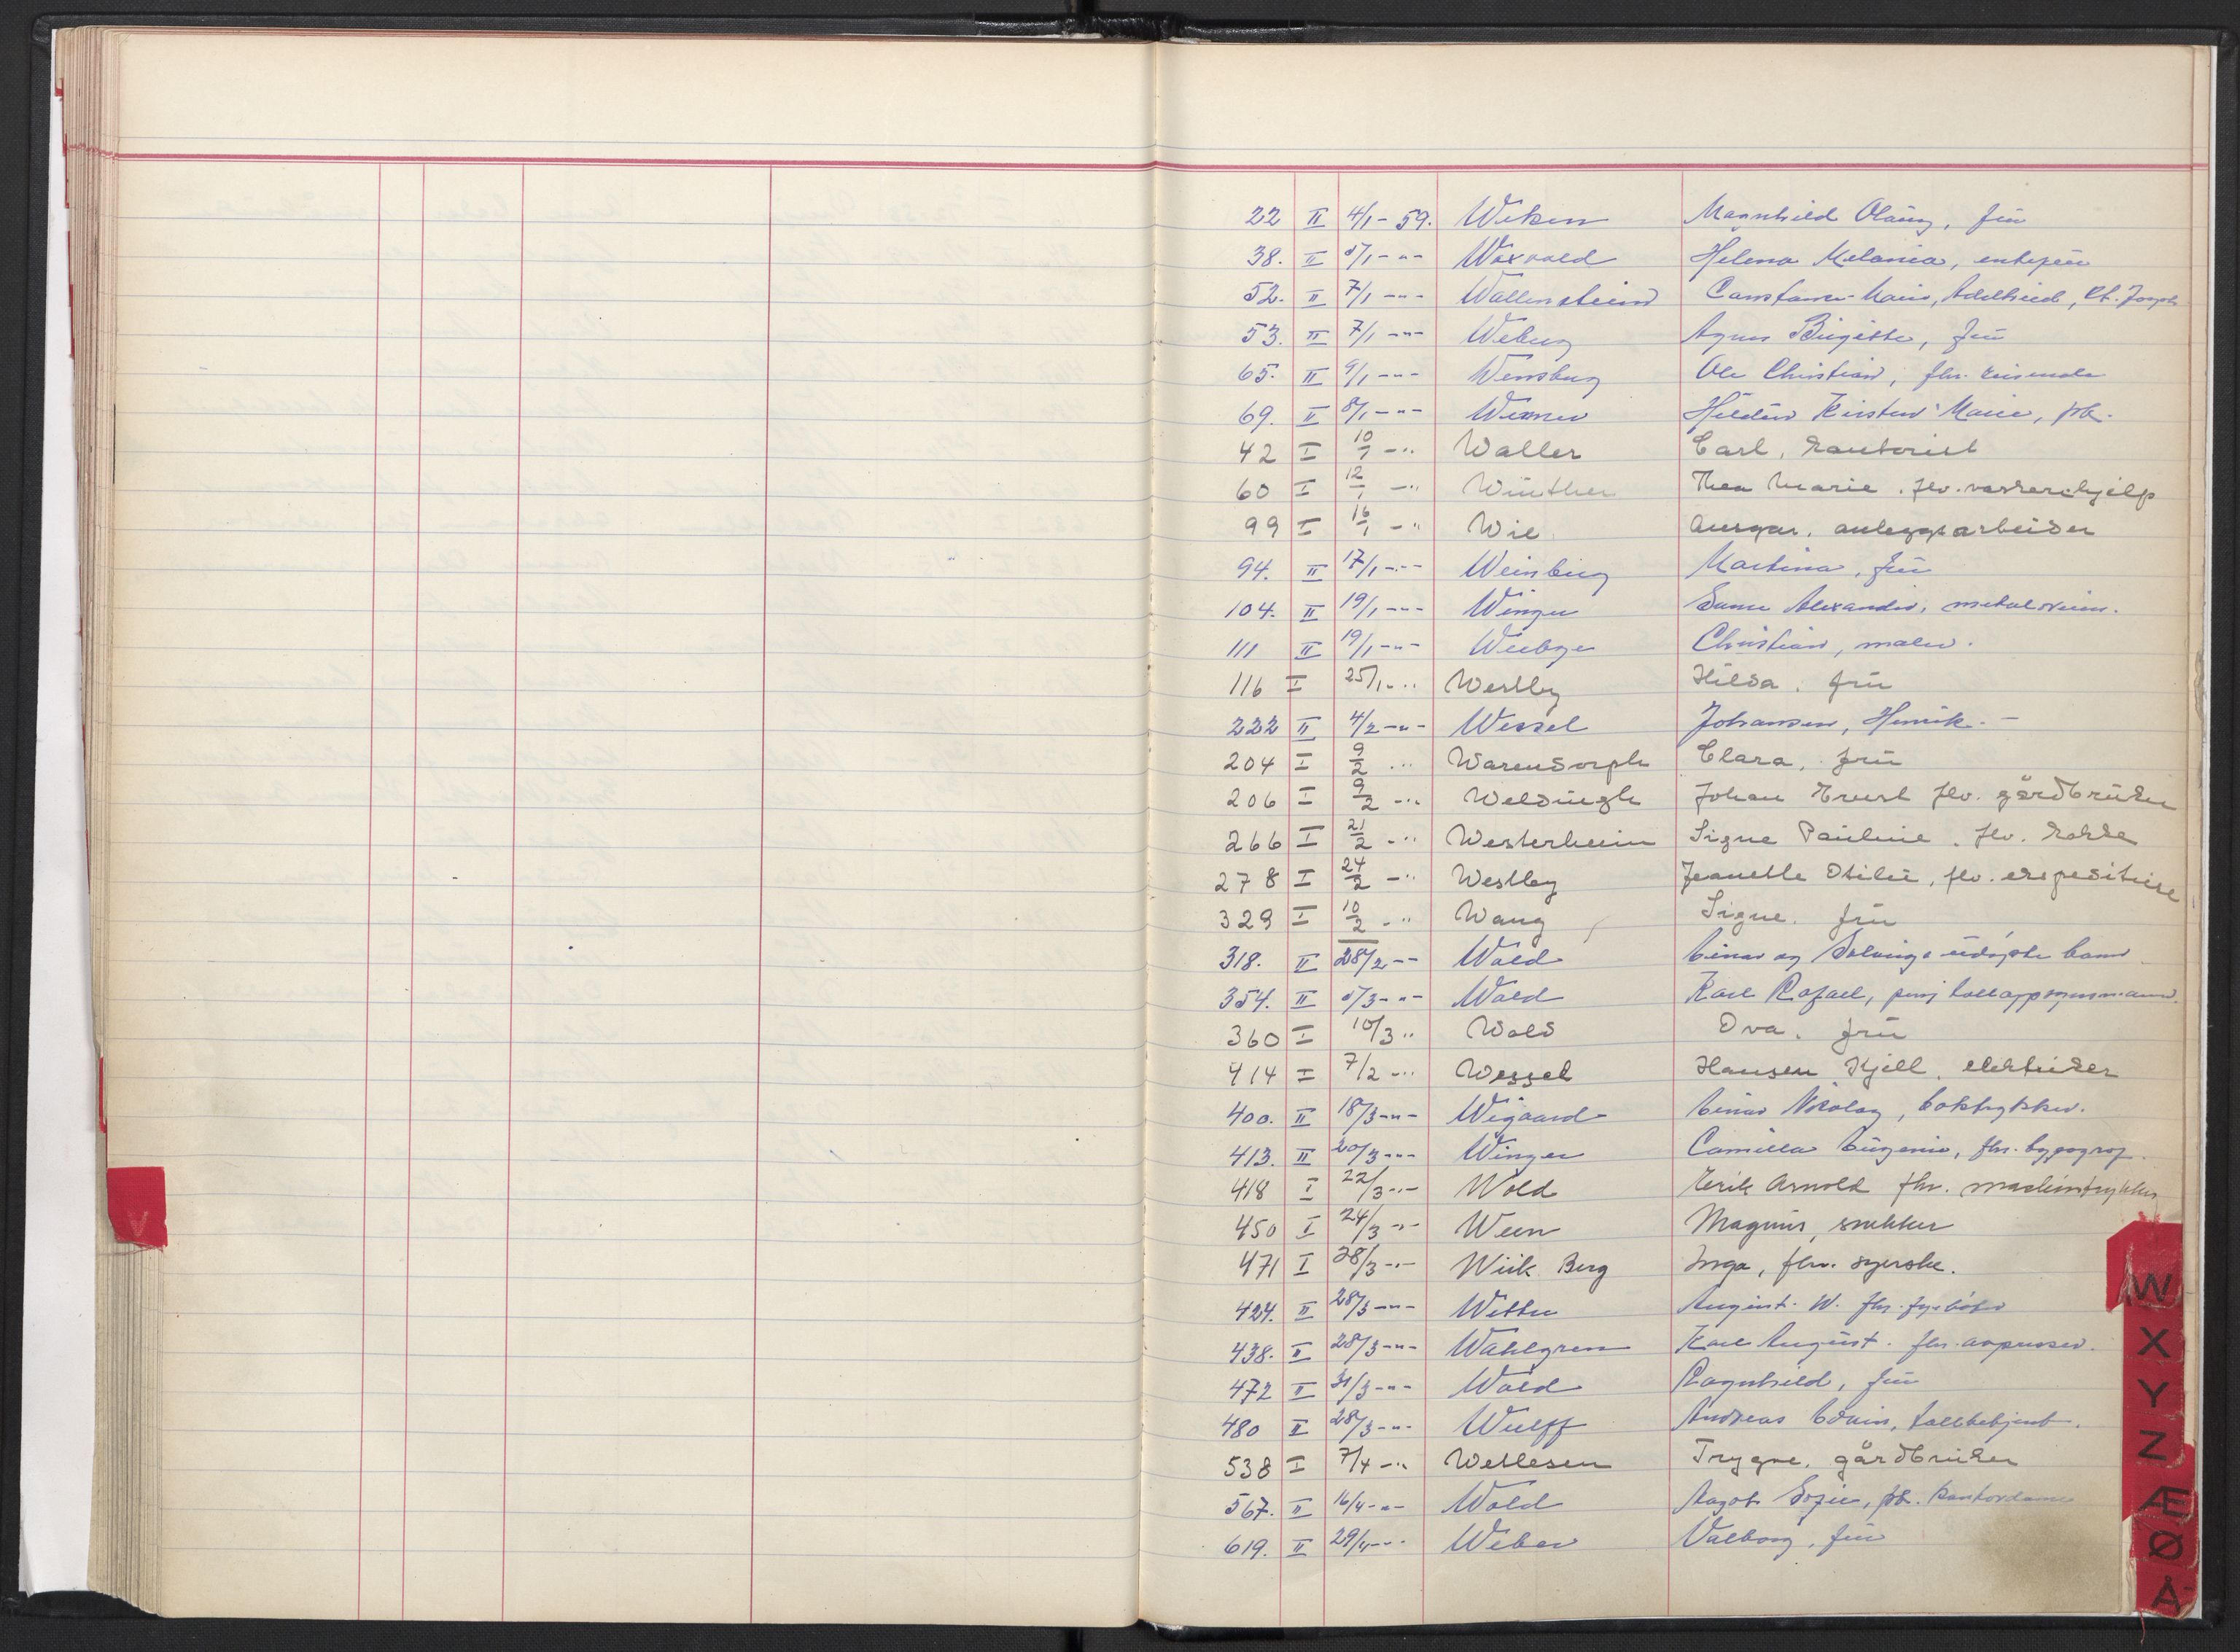 22 II 4/1 - 59. Wiken Magnhild Olaug, frú
38. II 5/1 - " - Waxvald Helena Melania, enkefrú
52. II 7/1 - " - Wallenstein Marie, Adelheid, St. Joseph
53. II 7/1 - " - Weberg Agnes Birgitte, frú
65. II 9/1 - " - Wensberg Ole Christian, fhv. reisende
69. II 8/1 - " - Werner Kirsten Marie, frk.
42 I 10/1 - " Waller Carl, kontorist
60 I 12/1 - " Winther Thea Marie. fhv. vaskerihjelp
99 I 16/1 - " Wie Ansgar. anleggsarbeider
94. II 17/1 - " - Weinberg Martina, frú
104. II 19/1 - " - Winger Alexander,
111 II 19/1 - " - Wiebye Christian, maler.
116 I 25/1 - " Westby Hilda. frú
222 II 4/2 - " - Wessel Johansen, Henrik. -
204 I 9/2 " Warendorph Clara, frú
206 I 9/2 - " Weldingh Johan Ernst fhv. gårdbrúker
266 I 21/2 - " Westerheim Signe Pauline. fhv. kokke
278 I 24/2 - " Westby Jeanette Otilie, fhv. ekspeditrise
329 I 10/2 - " Wang Signe. frú
318. II 28/2 - - Wold Einar og Solveigs údøpte barn
354. II 5/3 - " - Wold Karl Rafael, pensj. tolloppsynsmann.
360 I 10/3 " Wold Ova. frú
414 I 7/2 - " Wessel Hansen Kjell. elektriker
400. II 18/3 - " - Wigaard Einar Nikolay, boktrykker.
413. II 20/3 - " - Winger Camilla Eugenie, fhv. typograf.
418 I 22/3 - " - Wold Erik Arnold fhv. maskintrykker
450 I 24/3 - " - Ween Magnus, snekker
471 I 28/3 - " - Wiik Berg Inga, fhv. syerske.
424. II 28/3 - " - Witten August. W. fhv. fyrbøter
438. II 28/3 - " - Wahlgren Karl August. fhv. avpusser.
472 II 31/3 - " - Wold Ragnhild, frú
480 II 28/3 - " - Wulff Andreas Edvin, tollbetjent.
538 I 7/4 - " Wellesen Trygve. gårdbrúker
567. II 16/4 - " - Wold Aagot Sofie, frk. kontordame
619. II 29/4 - " Weber Valborg, frú
V
W
X
Y
Z
Æ
Ø
Å